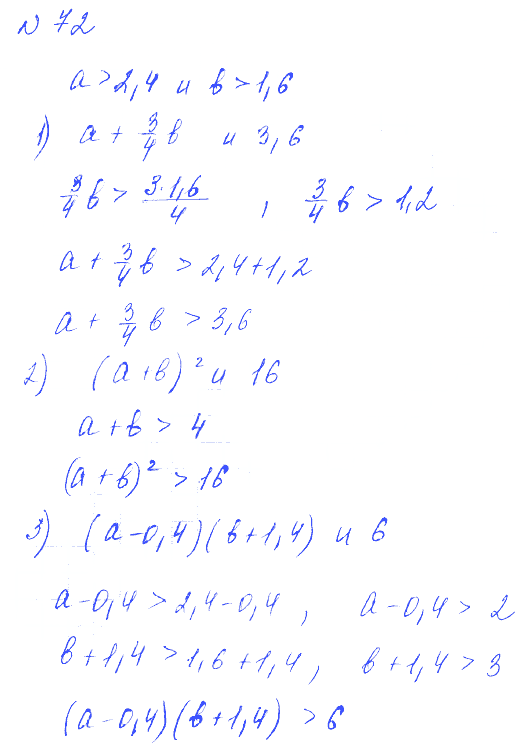 № 72
a > 2,4 и b > 1,6
1) a + 3/4 b и 3,6
3/4 b > 3·1,6/4 , 3/4 b > 1,2
a + 3/4 b > 2,4+1,2
a + 3/4 b > 3,6
2) (a+b)² и 16
a+b > 4
(a+b)² > 16
3) (a-0,4)(b+1,4) и 6
a-0,4 > 2,4-0,4 , a-0,4 > 2
b+1,4 > 1,6+1,4 , b+1,4 > 3
(a-0,4)(b+1,4) > 6